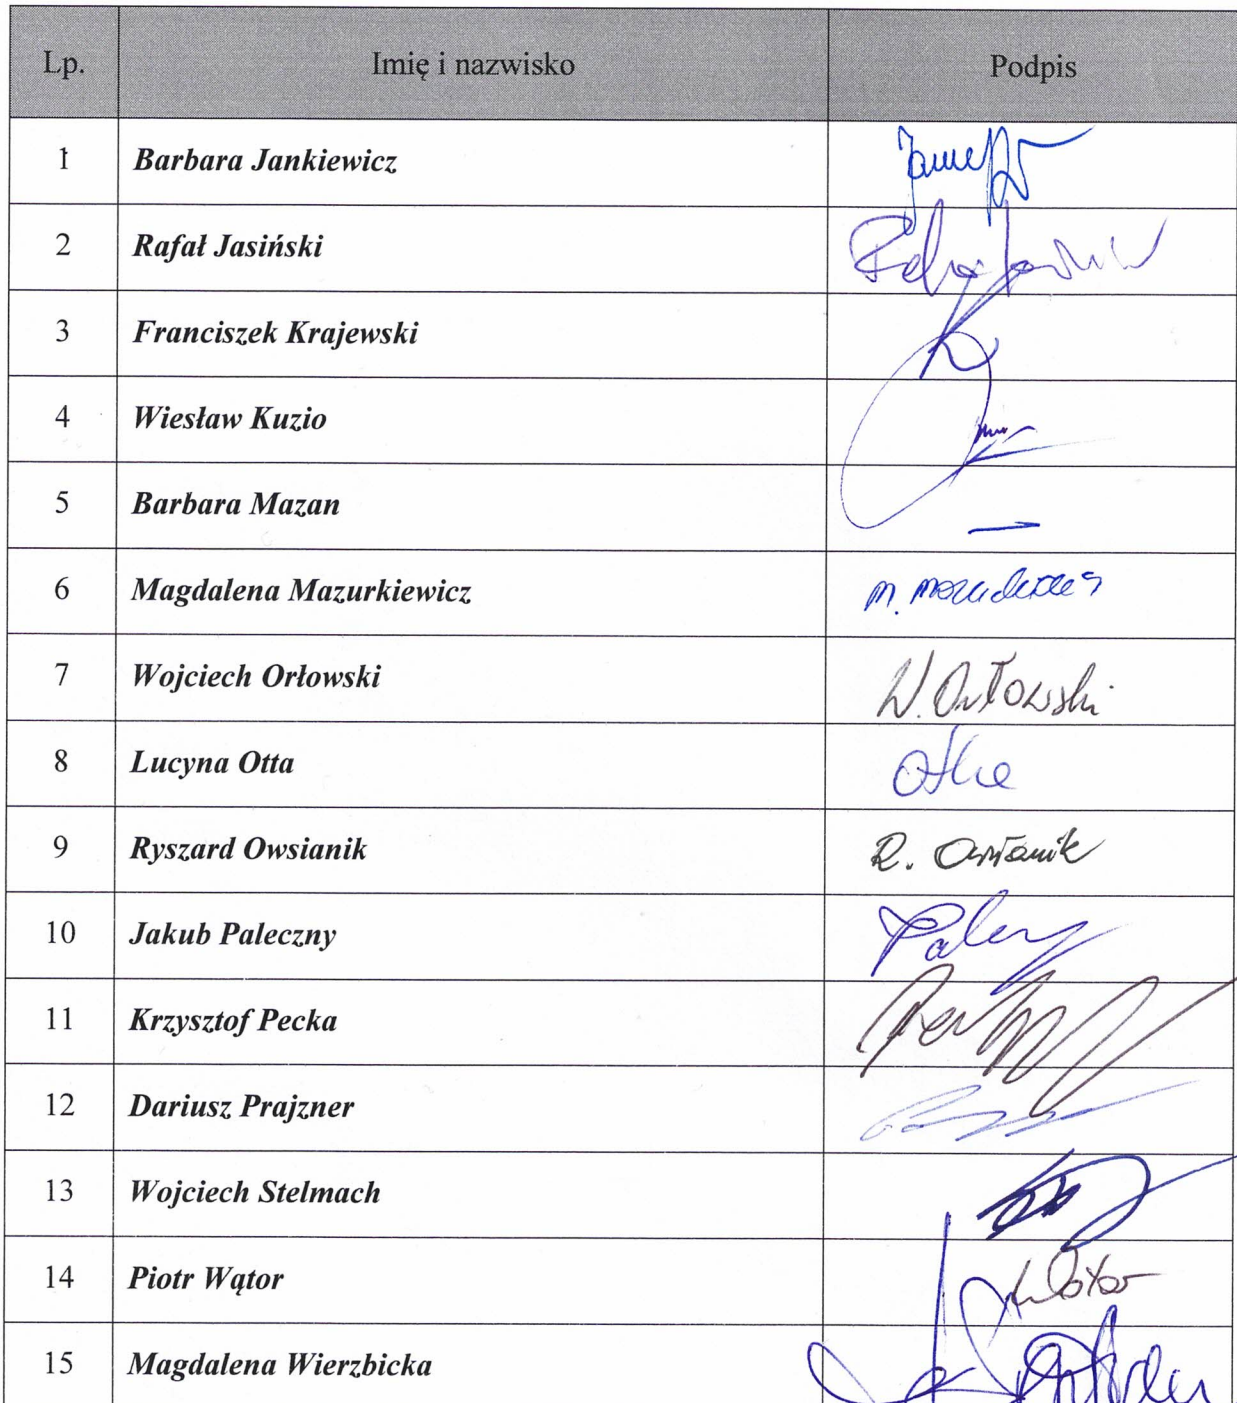 Lp. Imię i nazwisko Podpis
1 Barbara Jankiewicz
2 Rafał Jasiński
3 Franciszek Krajewski
4 Wiesław Kuzio
5 Barbara Mazan
6 Magdalena Mazurkiewicz
7 Wojciech Orłowski W. Orłowski
8 Lucyna Otta
9 Ryszard Owsianik R. Owsianik
10 Jakub Paleczny
11 Krzysztof Pecka
12 Dariusz Prajzner
13 Wojciech Stelmach
14 Piotr Wątor
15 Magdalena Wierzbicka